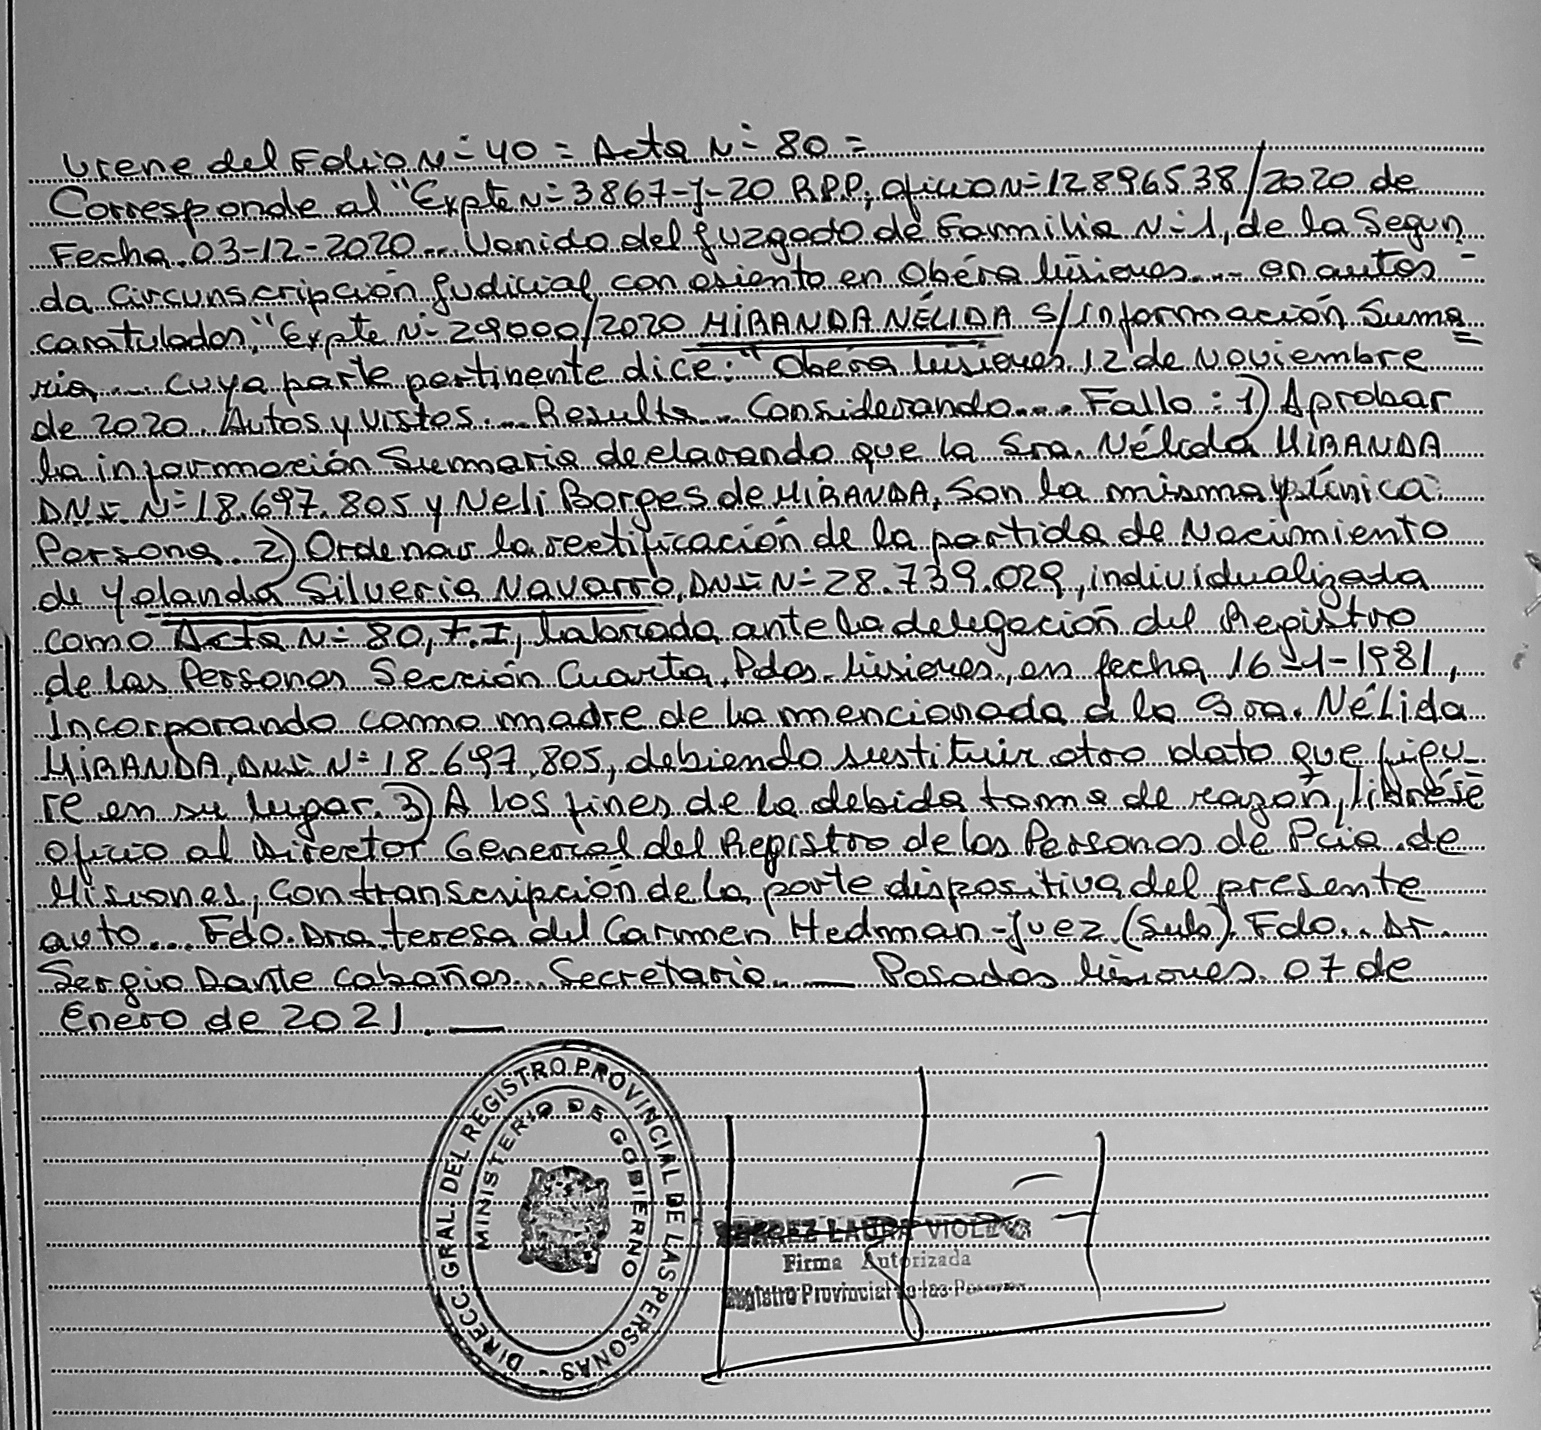 Viene del Folio N= 40 = Acta N= 80 =
Corresponde al "Expte N= 3867-J-20 R.P.P, oficio N= 12896538/2020 de
Fecha 03-12-2020... Venido del Juzgado de Familia N=1, de la Segun
da Circunscripción Judicial, con asiento en Oberá Misiones... en autos
caratulados, "Expte N= 29000/2020 MIRANDA NÉLIDA S/Información Suma
ria... cuya parte pertinente dice: "Oberá Misiones, 12 de Noviembre
de 2020. Autos y vistos... Resulta... Considerando... Fallo: 1) Aprobar
la información Sumaria declarando que la Sra. Nélida MIRANDA
DNI. N= 18.697.805 y Neli Borges de MIRANDA, Son la misma y única
Persona. 2) Ordenar la rectificación de la partida de Nacimiento
de Yolanda Silveria Navarro, DNI N= 28.739.029, individualizada
como Acta N= 80, T. I, labrada ante la delegación del Registro
de las Personas Sección Cuarta, Pdas. Misiones, en fecha 16-1-1981,
Incorporando como madre de la mencionada a la Sra. NéLida
MIRANDA, DNI N= 18.697.805, debiendo sustituir otro dato que figu
re en su lugar. 3) A los fines de la debida toma de razón, líbrese
Oficio al Director General del Registro de las Personas de Pcia. de
Misiones, con transcripción de la parte dispositiva del presente
auto... Fdo. Dra. Teresa del Carmen Hedman-Juez (Sub). Fdo.. Dr.
Sergio Dante Cabañas... Secretario. — Posadas Misiones. 07 de
Enero de 2021. —
DIRECC. GRAL. DEL REGISTRO PROVINCIAL DE LAS PERSONAS -
MINISTERIO DE GOBIERNO
LAURA
Firma Autorizada
Registro Provincial de las Personas